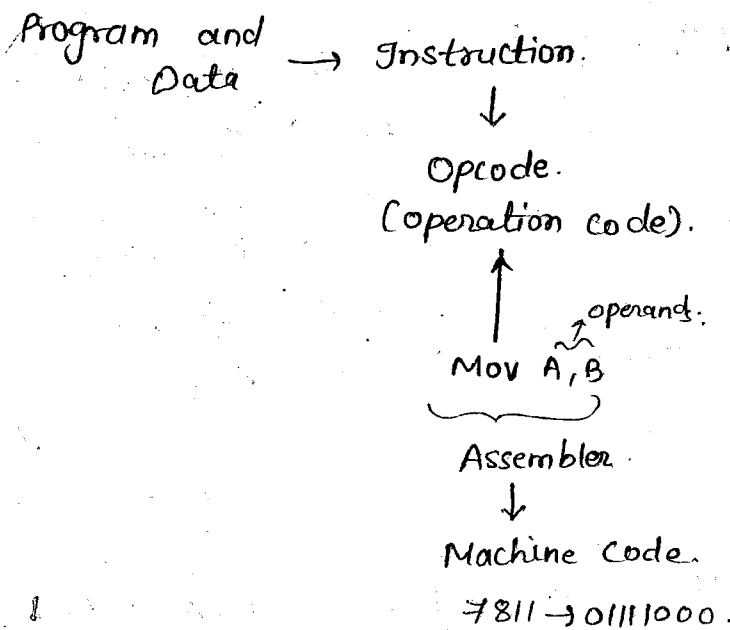 Program and
Data → Instruction.
↓
Opcode.
(operation code).
↑
operands.
Mov A, B
Assembler.
↓
Machine Code.
7811 → 01111000.